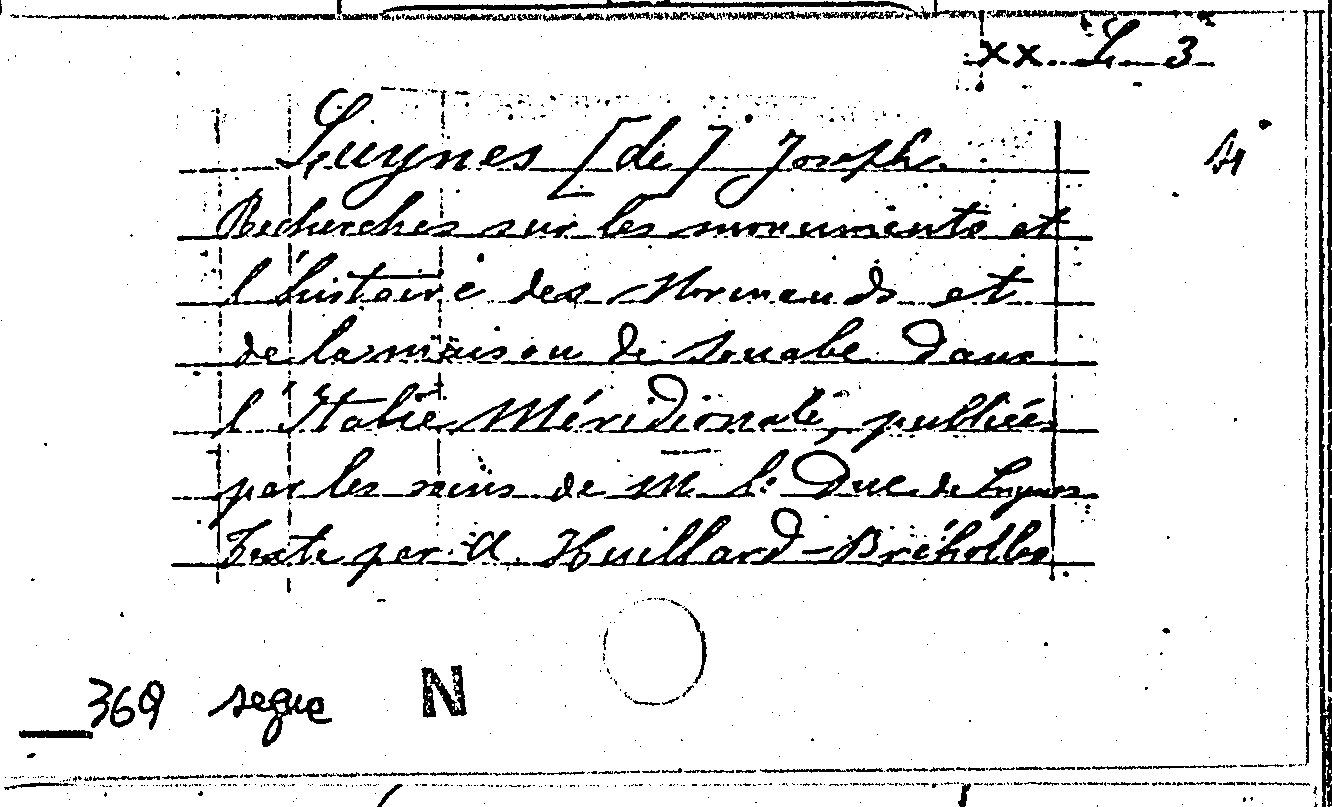 XX. L. 3
Luynes [de] Joseph.
Recherches sur les monuments et
l'histoire des Normands et
de la maison de Souabe dans
l'Italie Méridionale, publiées
par les soins de M. le Duc de Luynes
Texte par A. Huillard-Bréholles
369 segue N